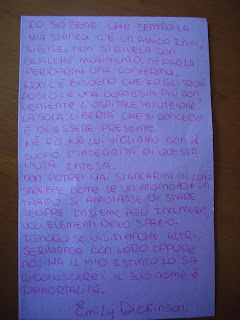 IO SO BENE CHE DENTRO LA
MIA STANZA C'È UN AMICO INVI-
SIBILE, NON SI RIVELA CON
QUALCHE MOVIMENTO, NÉ PARLA
PER DARMI UNA CONFERMA.
NON C'È BISOGNO CHE IO GLI TROVI
POSTO: È UNA CORTESIA PIÙ CON-
VENIENTE L'OSPITALE INTUIZIONE
LA SOLA LIBERTÀ CHE SI CONCEDE
È DI ESSERE PRESENTE.
NÉ IO NÉ LUI VIOLIAMO CON 1
SUONO L'INTEGRITÀ DI QUESTA
MUTA INTESA.
NON POTREI MAI STANCARMI DI LUI:
SAREBBE COME SE UN ATOMO AD UN
TRATTO SI ANNOIASSE DI STARE
SEMPRE INSIEME AGLI INNUMERE-
VOLI ELEMENTI DELLO SPAZIO.
IGNORO SE VISITI ANCHE ALTRI,
SE RIMANGA CON LORO OPPURE
NO. MA IL MIO ISTINTO LO SA
RICONOSCERE: IL SUO NOME È
IMMORTALITÀ.
Emily Dickinson